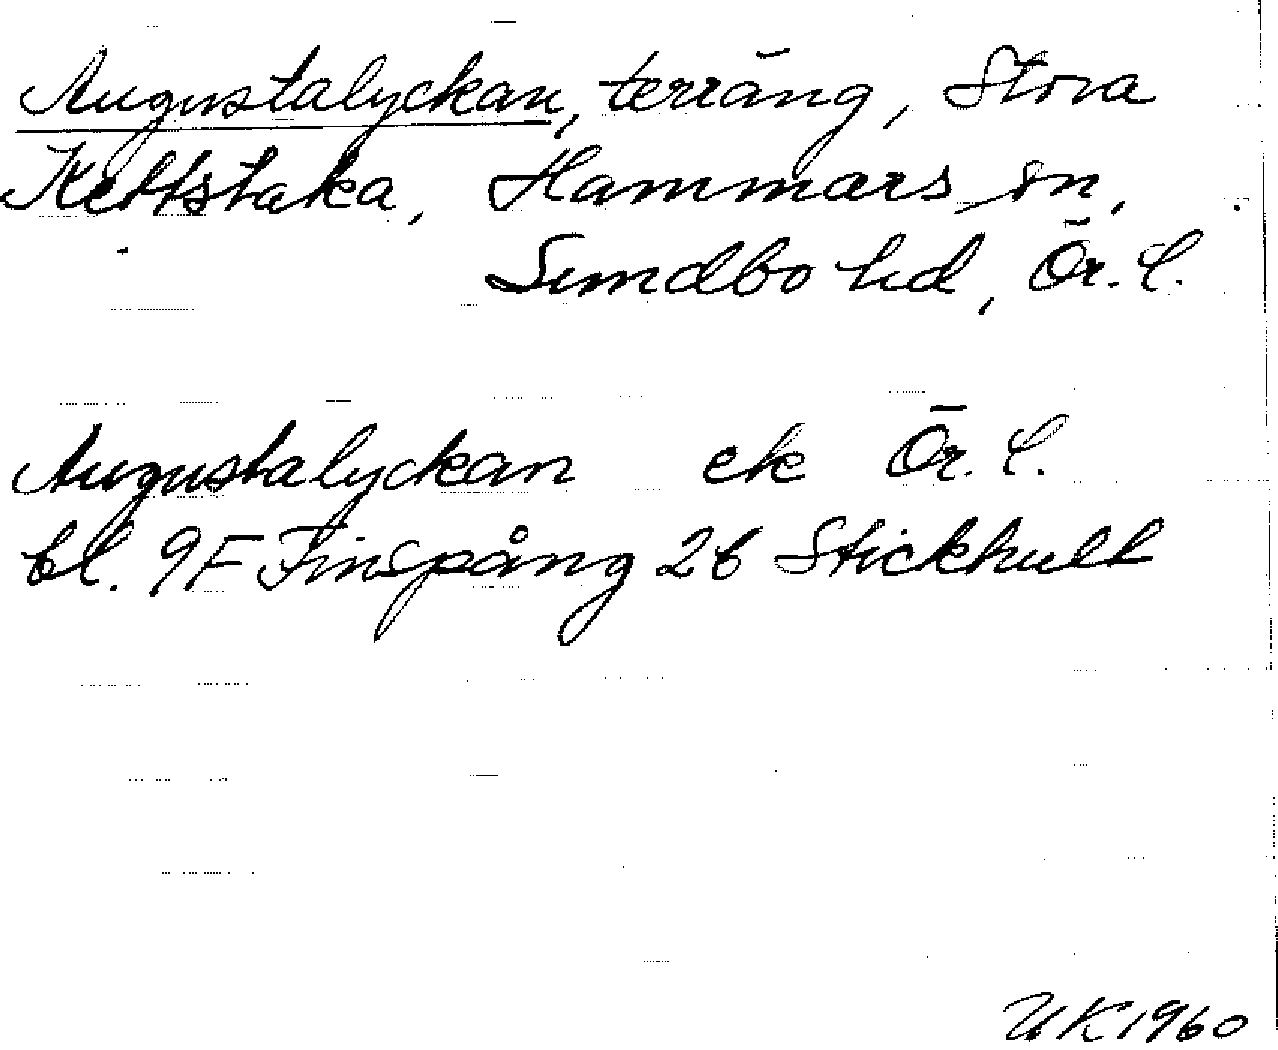 Augustalyckan, terräng, Stora
Kettstaka, Hammars sn,
Sundbo hd, Ör. l.
Augustalyckan ek Ör. l.
bl. 9F Finspång 2b Stickhult
UK 1960